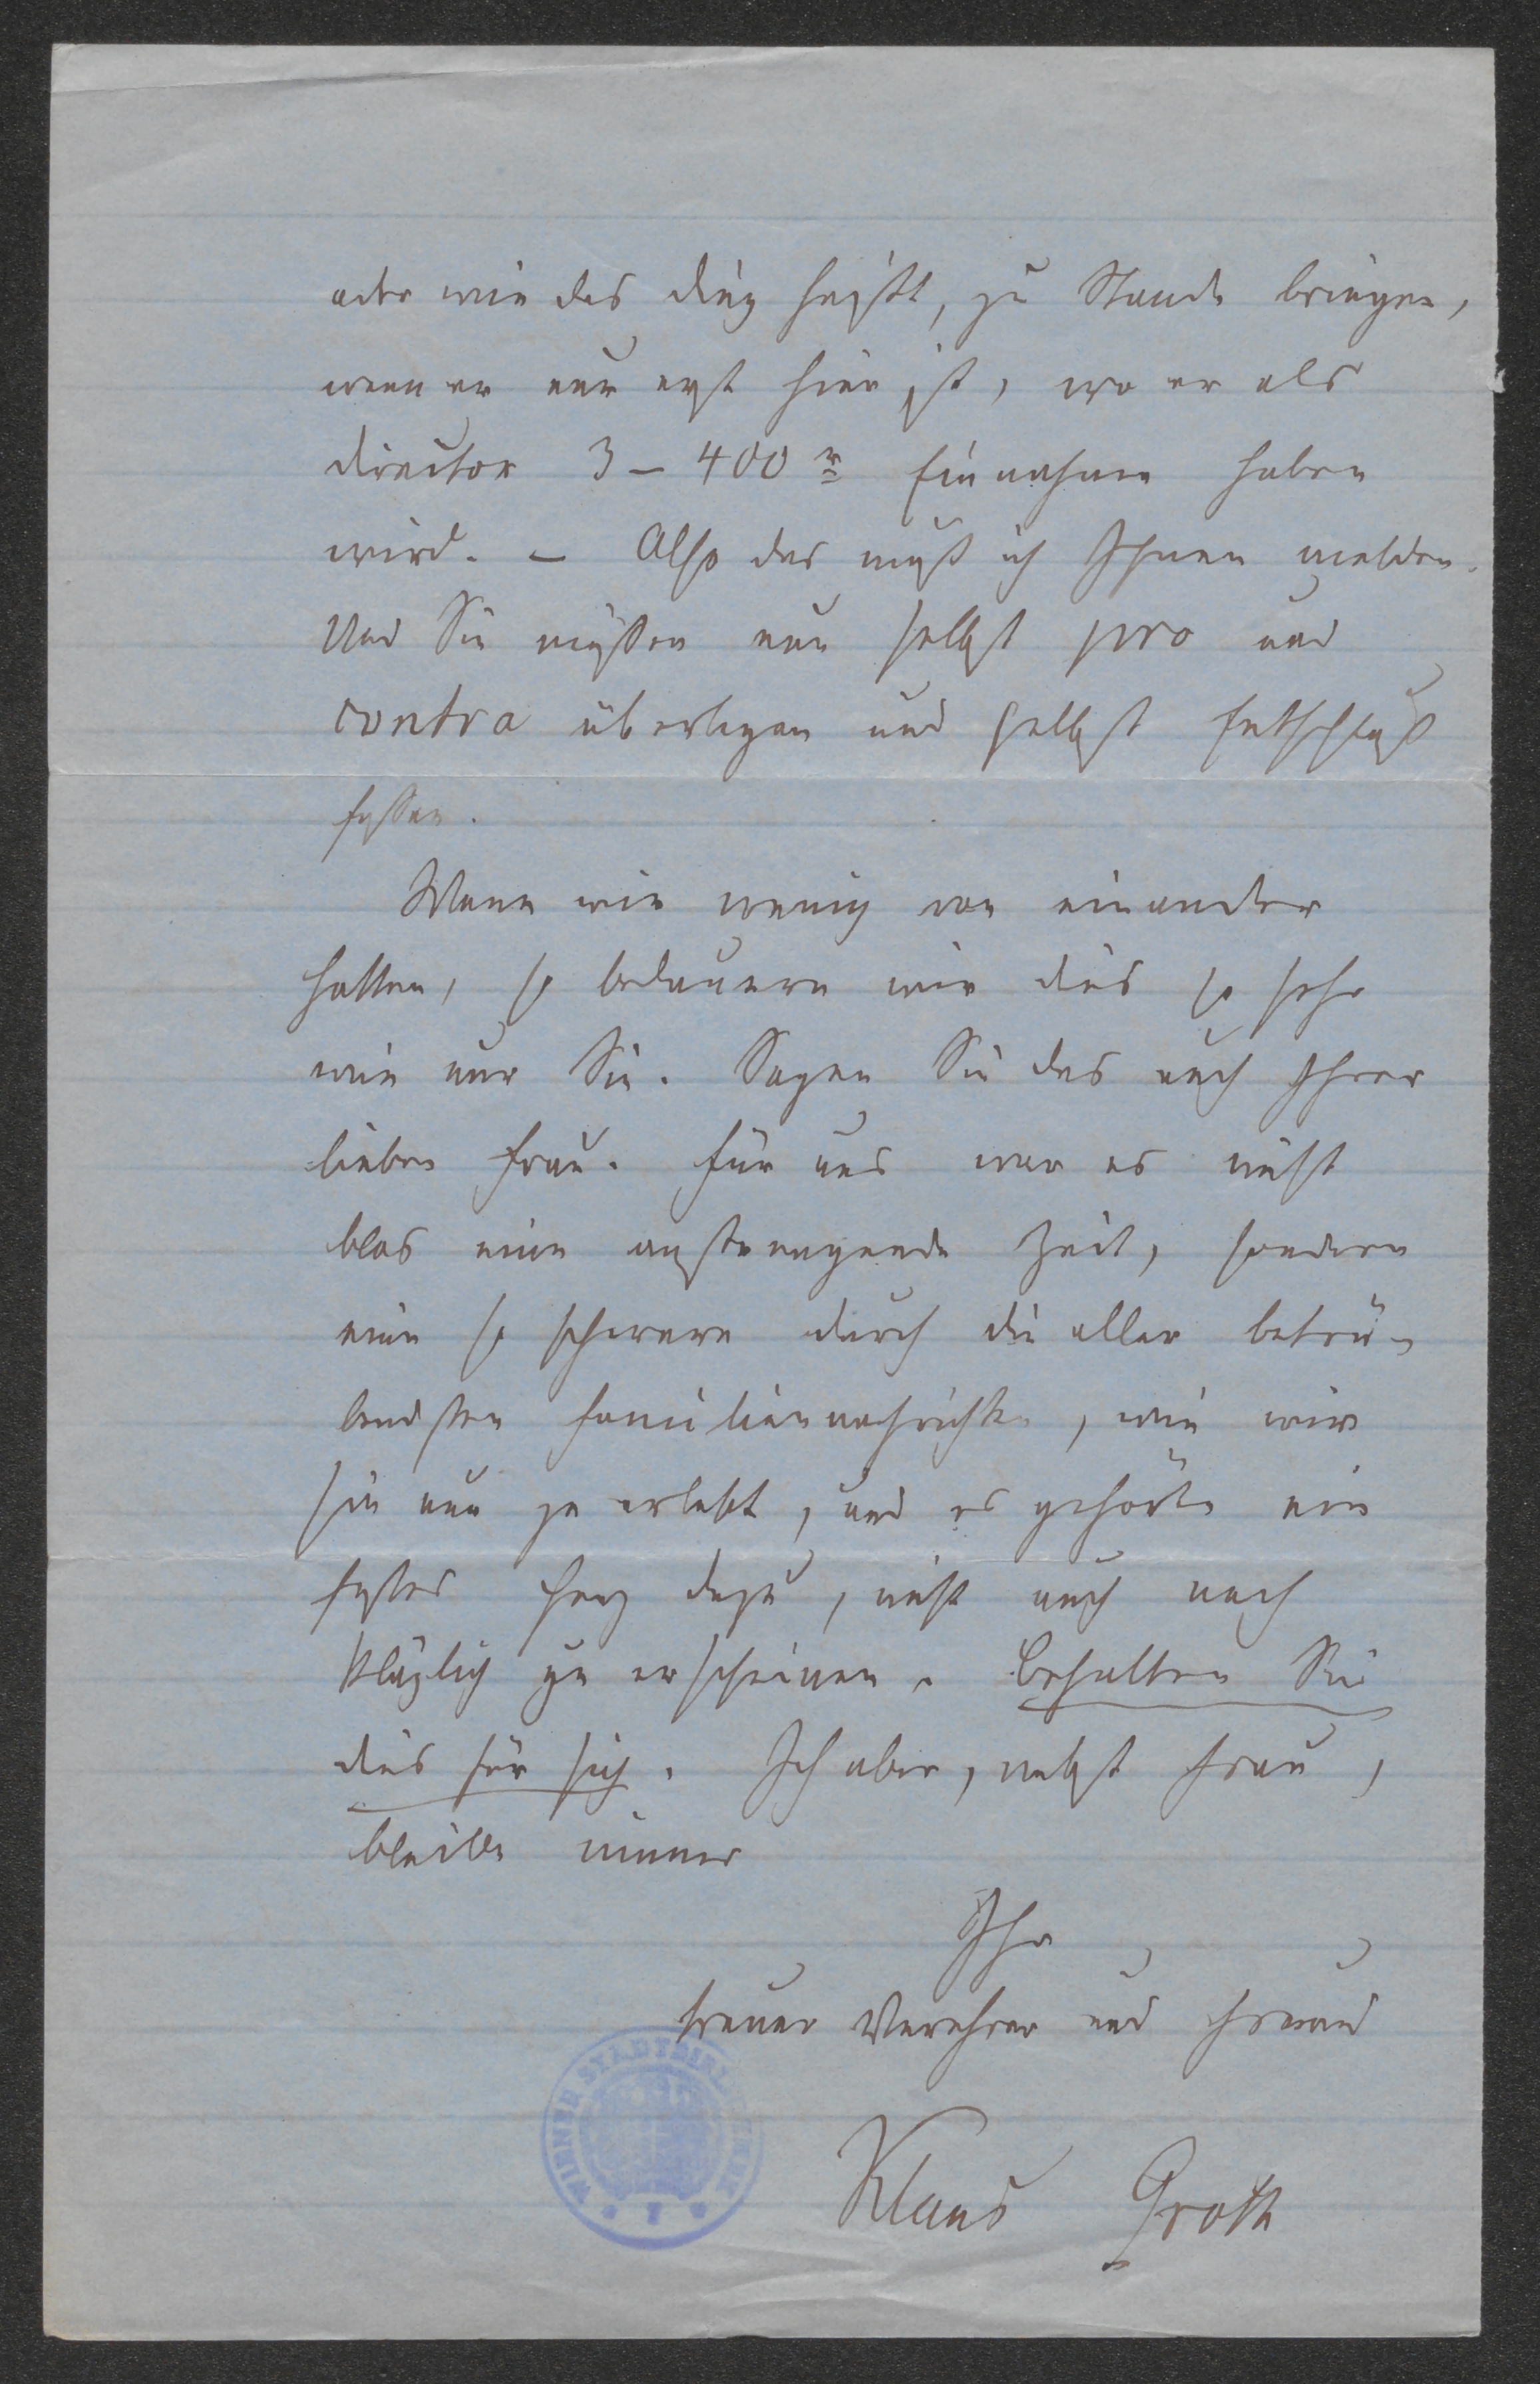 oder wie das Ding heißt, zu Stande bringen,
wenn er nur erst hier ist, wo er als
Director 3 – 400 r Einnahme haben
wird. – Also das muß ich Ihnen melden.
Und Sie müssen nun selbst pro und
contra überlegen und selbst Entschluß
fassen.
Wenn wir wenig von einander
hatten, so bedauern wir dies so sehr
wie nur Sie. Sagen Sie das auch Ihrer
lieben Frau. Für uns war es nicht
blos eine anstrengende Zeit, sondern
eine so schwere durch die aller betrü-
bendsten Familiennachrichten, wie wir
sie nun je erlebt, und es gehörte ein
festes Herz dazu, nicht auch noch
kläglich zu erscheinen. Behalten Sie
dies für sich. Ich aber, nebst Frau,
bleibe immer
Ihr
treuer Verehrer und Freund
Klaus Groth
WIENER STADTBIBLIOTHEK